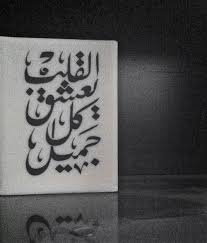 القلب
يعشق
كل
جميل